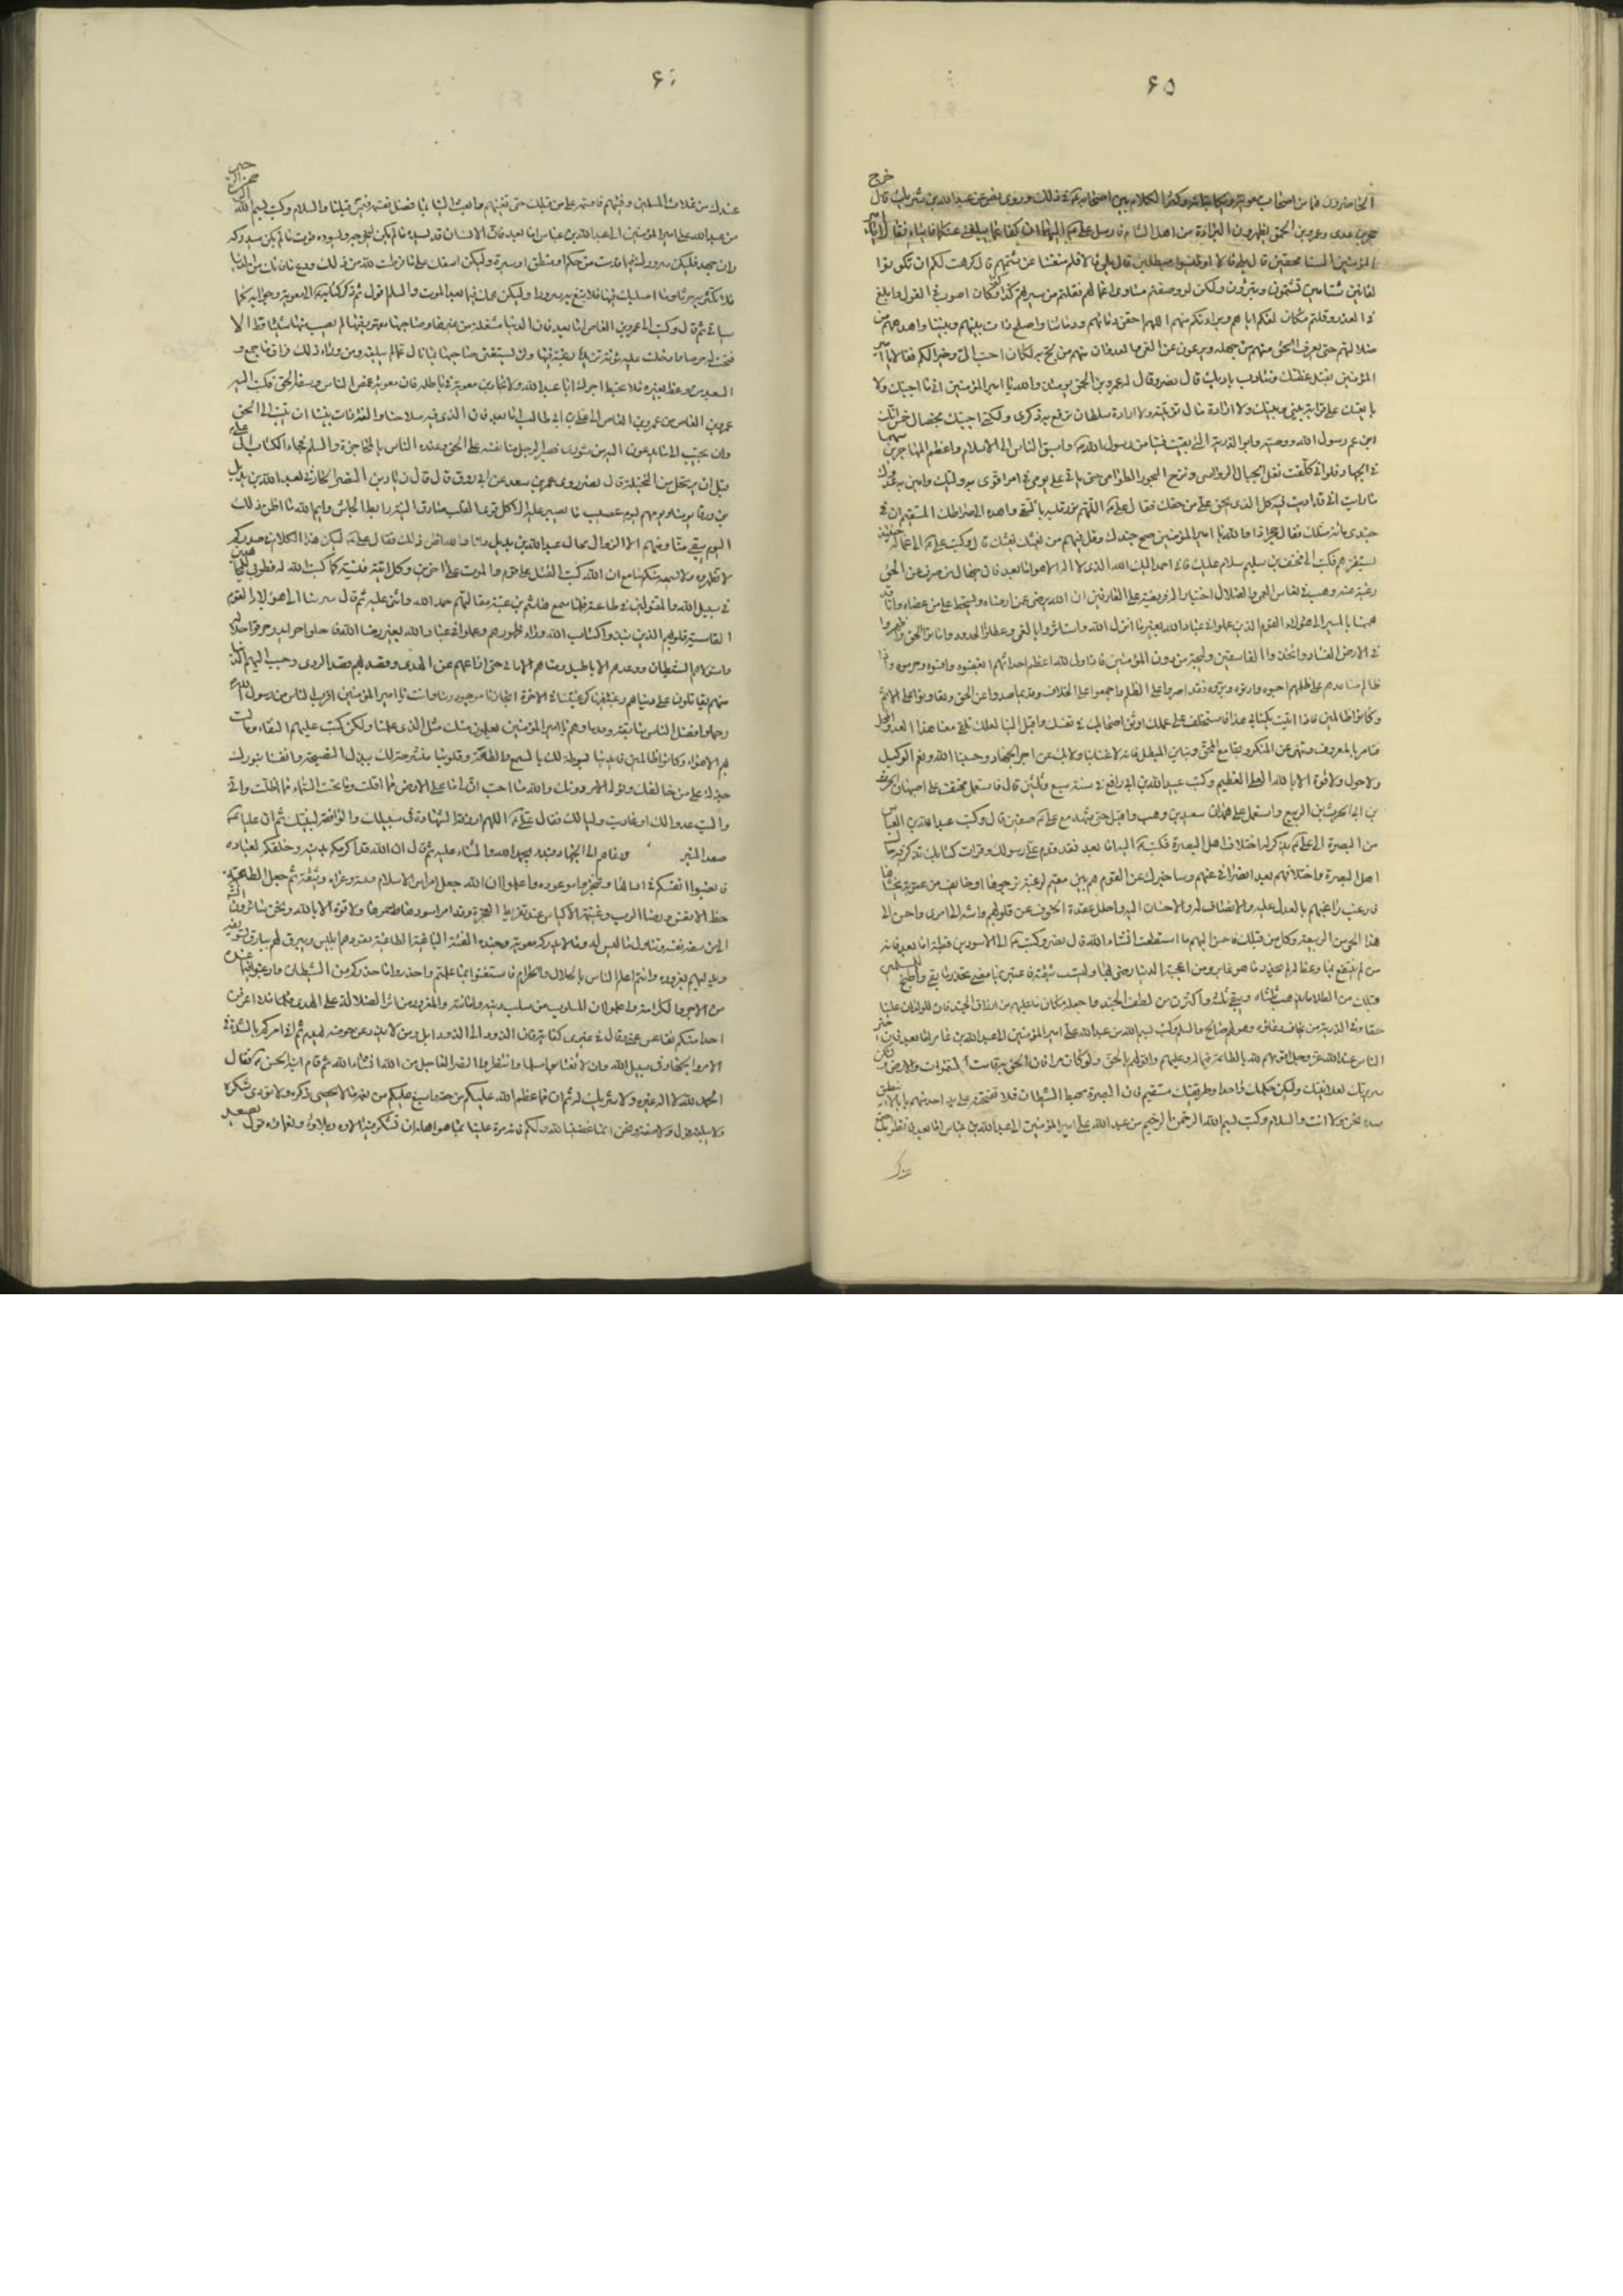 ۶۵
خرج
حجر بن عدي وعمرو بن الحمق يظهران البراءة من اهل الشام فارسل علي اليهما ان كفا عما يبلغني عنكما فاتياه فقالا يا امير
المؤمنين السنا محقين قال بلى قالا اوليسوا مبطلين قال بلى قالا فلم منعتنا عن شتمهم قال كرهت لكم ان تكونوا
لعانين شتامين تشتمون وتتبرؤن ولكن لو وصفتم مساوى اعمالهم فقلتم من سيرتهم كذا وكذا كان اصوب في القول وابلغ
في العذر وقلتم مكان لعنكم اياهم وبراءتكم منهم اللهم احقن دمائهم ودمائنا واصلح ذات بينهم وبيننا واهدهم من
ضلالتهم حتى يعرف الحق منهم من جهله ويرعوى عن الغي والعدوان منهم من لج به لكان احب الي وخيرا لكم فقالا يا امير
المؤمنين نقبل عظتك ونتادب بادبك قال نصر وقال له عمرو بن الحمق يومئذ والله يا امير المؤمنين اني ما احببتك ولا
بايعتك على قرابة بيني وبينك ولا ارادة مال تؤتينيه ولا ارادة سلطان ترفع به ذكري ولكني احببتك بخصال خمس انك
ابن عم رسول الله ووصيه وابو الذرية التي بقيت فينا من رسول الله واسبق الناس الى الاسلام واعظم المهاجرين سهما
في الجهاد فلو اني كلفت نقل الجبال الرواسي ونزح البحور الطوامي حتى ياتي علي يومي في امر اقوى به وليك واهين به عدوك
ما رايت اني قد اديت فيه كل الذي يحق علي من حقك فقال علي اللهم نور قلبه بالتقى واهده الى صراطك المستقيم ليت ان في
جندي مائة مثلك فقال حجر اذا والله يا امير المؤمنين صح جندك وقل فيهم من يغشك قال وكتب علي الى عماله
يستنفزهم فكتب الى مخنف بن سليم سلام عليك فاني احمد اليك الله الذي لا اله الا هو اما بعد فان جهاد من صدف عن الحق
رغبة عنه وهب في نعاس العمى والضلال اختيارا له فريضة على العارفين ان الله يرضى عمن ارضاه ويسخط على من عصاه وانا قد
هممنا بالمسير الى هؤلاء القوم الذين عملوا في عباد الله بغير ما انزل الله واستاثروا بالفئ وعطلوا الحدود واماتوا الحق واظهروا
في الارض الفساد واتخذوا الفاسقين وليجة من دون المؤمنين فاذا ولي لله اعظم احداثهم ابغضوه واقصوه وحرموه واذا
ظالم ساعدهم على ظلمهم احبوه وادنوه وبروه فقد اصروا على الظلم واجمعوا على الخلاف وقديما صدوا عن الحق وتعاونوا على الاثم
وكانوا ظالمين فاذا اتيت بكتابي هذا فاستخلف على عملك اوثق اصحابك في نفسك واقبل الينا لعلك تلقى معنا هذا العدو المحل
فتامر بالمعروف وتنهى عن المنكر وتجامع المحق وتباين المبطل فانه لا غناء بنا ولا بك عن اجر الجهاد وحسبنا الله ونعم الوكيل
ولا حول ولا قوة الا بالله العلي العظيم وكتب عبيد الله بن ابي رافع في سنة سبع وثلثين قال فاستعمل مخنف على اصبهان الحرث
بن ابي الحرث بن الربيع واستعمل على همدان سعيد بن وهب واقبل حتى شهد مع علي صفين قال وكتب عبد الله بن العباس
من البصرة الى علي يذكر له اختلاف اهل البصرة فكتب اليه اما بعد فقد قدم علي رسولك وقرات كتابك تذكر فيه حال
اهل البصرة واختلافهم بعد انصرافي عنهم وساخبرك عن القوم هم بين مقيم لرغبة يرجوها او خائف من عقوبة يخشاها
فارغب راغبهم بالعدل عليه والانصاف له والاحسان اليه واحلل عقدة الخوف عن قلوبهم وانته الى امري واحسن الى
هذا الحي من الربيعة وكل من قبلك فاحسن اليهم ما استطعت انشاء الله قال نصر وكتب الى الاسود بن قطبة اما بعد فانه
من لم ينتفع بما وعظ لم يحذر ما هو غابر ومن اعجبته الدنيا رضي بها وليست بثقة فاعتبر بما مضى تحذر ما بقى واطبخ للمسلمين
قبلك من الطلا ما يذهب ثلثاه ويبقى ثلثه واكثر لنا من لطف الجند واجعله مكان ما عليهم من ارزاق الجند فان للولدان علينا
حقا وفي الذرية من يخاف دعائه وهو لهم صالح والسلم وكتب بسم الله من عبد الله علي امير المؤمنين الى عبد الله بن عامر اما بعد فان خير
الناس عند الله عز وجل اقومهم لله بالطاعة فيما له وعليه واقولهم بالحق ولو كان مرا فان الحق به قامت السموات والارض ولتكن
سريرتك كعلانيتك وليكن حكمك واحدا وطريقتك مستقيم فان البصرة مهبط الشيطان فلا تفتحن على يد احد منهم بابا لا نطيق
سده نحن ولا انت والسلام وكتب بسم الله الرحمن الرحيم من عبد الله علي امير المؤمنين الى عبد الله بن عباس اما بعد فانظر ما اجتمع
عندك
عندك من غلات المسلمين وفيئهم فاقسمه على من قبلك حتى تغنيهم وابعث الينا بما فضل نقسمه فيمن قبلنا والسلام وكتب بسم الله الرحمن الرحيم
من عبد الله علي امير المؤمنين الى عبد الله بن عباس اما بعد فان الانسان قد يسره ما لم يكن ليفوته ويسوءه فوت ما لم يكن ليدركه
وان جهد فليكن سرورك فيما قدمت من حكم او منطق او سيرة وليكن اسفك على ما فرطت لله من ذلك ودع ما فاتك من الدنيا
فلا تكثر به حزنا وما اصابك فيها فلا تبغ به سرورا وليكن همك فيما بعد الموت والسلم
ثم قال وكتب الى عمرو بن العاص اما بعد فان الدنيا مشغلة عن غيرها وصاحبها مقهور فيها لم يصب منها شيئا قط الا
فتحت له حرصا وادخلت عليه مؤنة تزيده رغبة فيها ولن يستغني صاحبها بما نال عما لم يبلغه ومن وراء ذلك فراق ما جمع و
السعيد من وعظ بغيره فلا تحبط اجرك ابا عبد الله ولا تجارين معوية في باطله فان معوية غمص الناس وسفه الحق فكتب اليه
عمرو بن العاص من عمرو بن العاص الى علي بن ابي طالب اما بعد فان الذي فيه صلاحنا والفة ذات بيننا ان تنيب الى الحق
وان تجيب الى ما ندعون اليه من شورى فصبر الرجل منا نفسه على الحق وعذره الناس بالمحاجزة والسلم فجاء الكتاب الى علي
قبل ان يرتحل من النخيلة قال نصر روى عمر بن سعد عن ابي روق قال قال زياد بن النضر الحارثي لعبد الله بن بديل
بن ورقا يومنا ويومهم ليوم عصيب ما يصبر عليه الا كل قوي القلب صادق النية رابط الجاش وايم الله ما اظن ذلك
اليوم يبقى منا ومنهم الا الرذال فقال عبد الله بن بديل وانا والله اظن ذلك فقال علي ليكن هذا الكلام في صدوركم
لا تظهروه ولا يسمعه منكم سامع ان الله كتب القتل على قوم والموت على اخرين وكل اتيه منيته كما كتب الله له فطوبى للمجاهدين
في سبيل الله والمقتولين في طاعته فلما سمع هاشم بن عتبة مقالتهم حمد الله واثنى عليه ثم قال سر بنا الى هؤلاء القوم
القاسية قلوبهم الذين نبذوا كتاب الله وراء ظهورهم وعملوا في عباد الله بغير رضا الله فاحلوا حرامه وحرموا حلاله
واستولاهم الشيطان ووعدهم الاباطيل ومناهم الاماني حتى ازاغهم عن الهدى وقصد بهم قصد الردى وحبب اليهم الدنيا
فهم يقاتلون على دنياهم رغبة فيها كرغبتنا في الاخرة انجاز موعود ربنا وانت يا امير المؤمنين اقرب الناس من رسول الله
رحما وافضل الناس سابقة وقدما وهم يا امير المؤمنين يعلمون منك مثل الذي علمنا ولكن كتب عليهم الشقاء ومالت
بهم الاهواء وكانوا ظالمين فايدينا مبسوطة لك بالسمع والطاعة وقلوبنا منشرحة لك ببذل النصيحة وانفسنا بنورك
جذلة على من خالفك وتولى الامر دونك والله ما احب ان لي ما على الارض مما اقلت وما تحت السماء مما اظلت واني
واليت عدوا لك او عاديت وليا لك فقال علي اللهم ارزقه الشهادة في سبيلك والمرافقة لنبيك ثم ان عليا
صعد المنبر ودعاهم الى الجهاد فبدء بحمد الله والثناء عليه ثم قال ان الله قد اكرمكم بدينه وخلقكم لعبادته
فانصبوا انفسكم في ادائها وتنجزوا موعوده واعلموا ان الله جعل امراس الاسلام متينة وعراه وثيقة ثم جعل الطاعة
حظ الانفس ورضا الرب وغنيمة الاكياس عند تفريط العجزة وقد حملت امر اسودها واحمرها ولا قوة الا بالله ونحن سائرون انشاء الله
الى من سفه نفسه وتناول ما ليس له وما لا يدركه معوية وجنده الفئة الباغية الطاغية يقودهم ابليس ويبرق لهم ببارق تسويفه
ويدليهم بغروره وانتم اعلم الناس بالحلال والحرام فاستغنوا بما علمتم واحذروا ما حذركم من الشيطان وارغبوا فيما عنده
من الاجر والكرامة واعلموا ان المسلوب من سلب دينه وامانته والمغرور من اثر الضلالة على الهدى فلا اعرفن
احدا منكم تقاعس عني وقال في غيري كفاية فان الذود الى الذود ابل ومن لا يذد عن حوضه يتهدم ثم اني امركم بالشدة في
الامر والجهاد في سبيل الله وان لا تغتابوا مسلما وانتظروا النصر العاجل من الله انشاء الله ثم قام ابنه الحسن فقال
الحمد لله لا اله غيره ولا شريك له ثم ان مما عظم الله عليكم من حقه واسبغ عليكم من نعمه ما لا يحصى ذكره ولا يؤدى شكره
ولا يبلغه قول ولا صفة ونحن انما غضبنا لله ولكم فانه من علينا بما هو اهله ان نشكر فيه الاءه وبلاءه ونعماءه قول يصعد